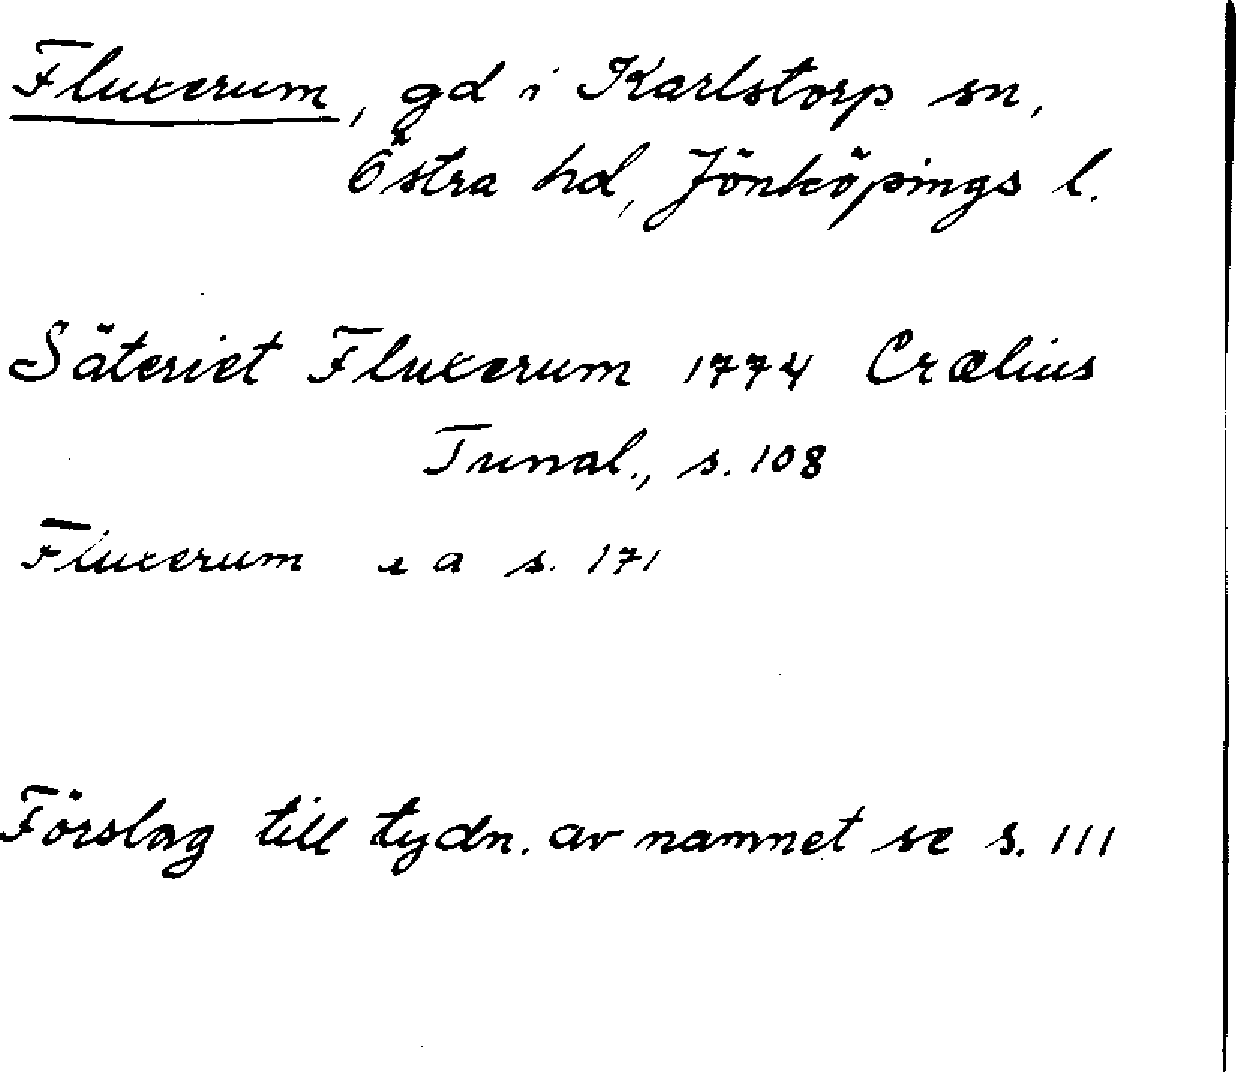 Fluxerum, gd i Karlstorp sn,
Östra hd, Jönköpings l.
Säteriet Fluxerum 1774 Crælius
Tunal., s. 108
Fluxerum i a s. 171
Förslag till tydn. av namnet se s. 111